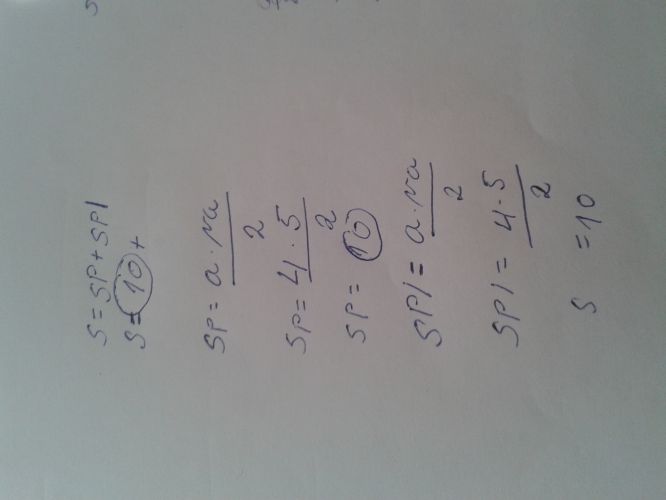 S = SP + SP1
S = 10 +
SP = a · va / 2
SP = 4 · 5 / 2
SP = 10
SP1 = a · va / 2
SP1 = 4 · 5 / 2
S = 10